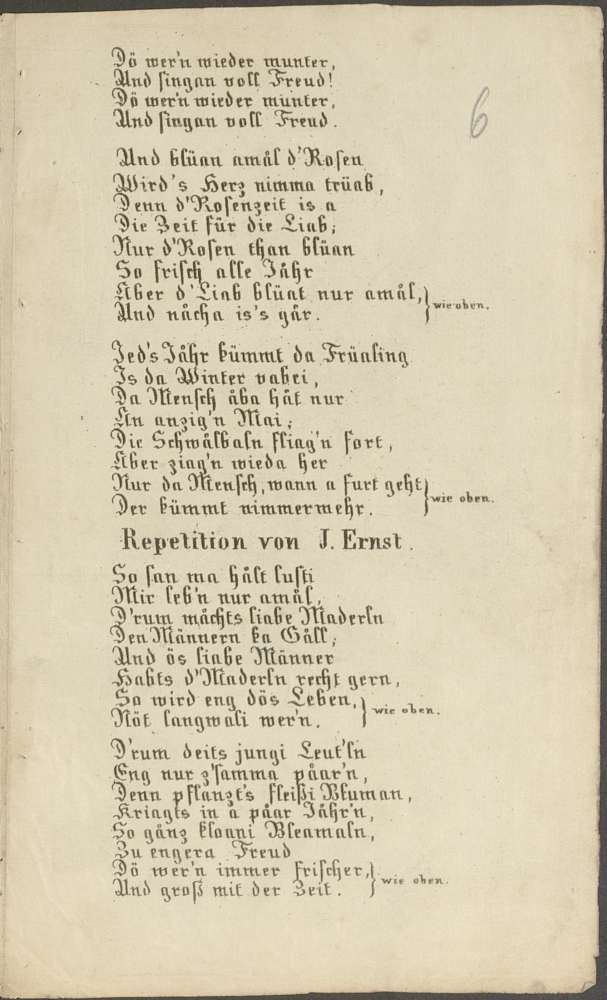 Dö wer'n wieder munter,
Und singan voll Freud!
Dö wer'n wieder munter,
Und singan voll Freud.
6
Und blüan amål d'Rosen
Wird's Herz nimma trüab,
Denn d'Rosenzeit is a
Die Zeit für die Liab;
Nur d'Rosen than blüan
So frisch alle Jåhr
Aber d'Liab blüat nur amål,
Und nåcha is's går.
wie oben.
Jed's Jåhr kümmt da Früaling
Is da Winter vabei,
Da Mensch åba håt nur
An anzig'n Mai;
Die Schwålbaln fliag'n fort,
Aber ziag'n wieda her
Nur da Mensch, wann a furt geht
Der kümmt nimmermehr.
wie oben.
Repetition von J. Ernst.
So san ma hålt lusti
Mir leb'n nur amål,
D'rum måchts liabe Maderln
Den Männern ka Gåll;
Und ös liabe Männer
Habts d'Maderln recht gern,
So wird eng dös Leben,
Nöt langwali wer'n.
wie oben.
D'rum deits jungi Leut'ln
Eng nur z'samma påar'n,
Denn pflanzt's fleißi Bluman,
Kriagts in a påar Jåhr'n,
So gånz kloani Bleamaln,
Zu engera Freud
Dö wer'n immer frischer,
Und groß mit der Zeit.
wie oben.